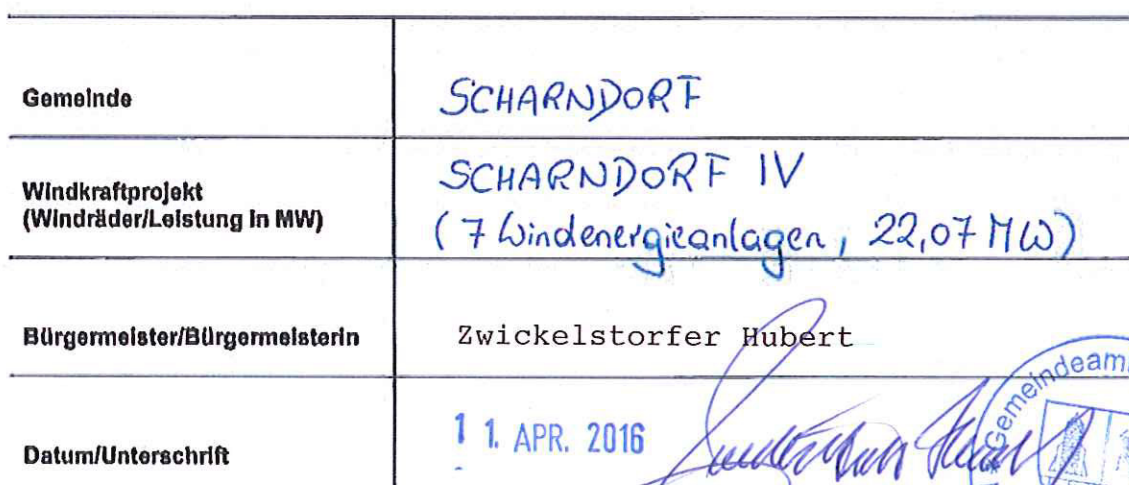 Gemeinde
SCHARNDORF
Windkraftprojekt
(Windräder/Leistung in MW)
SCHARNDORF IV
(7 Windenergieanlagen, 22,07 MW)
Bürgermeister/Bürgermeisterin
Zwickelstorfer Hubert
Datum/Unterschrift
11. APR. 2016
*Gemeindeam